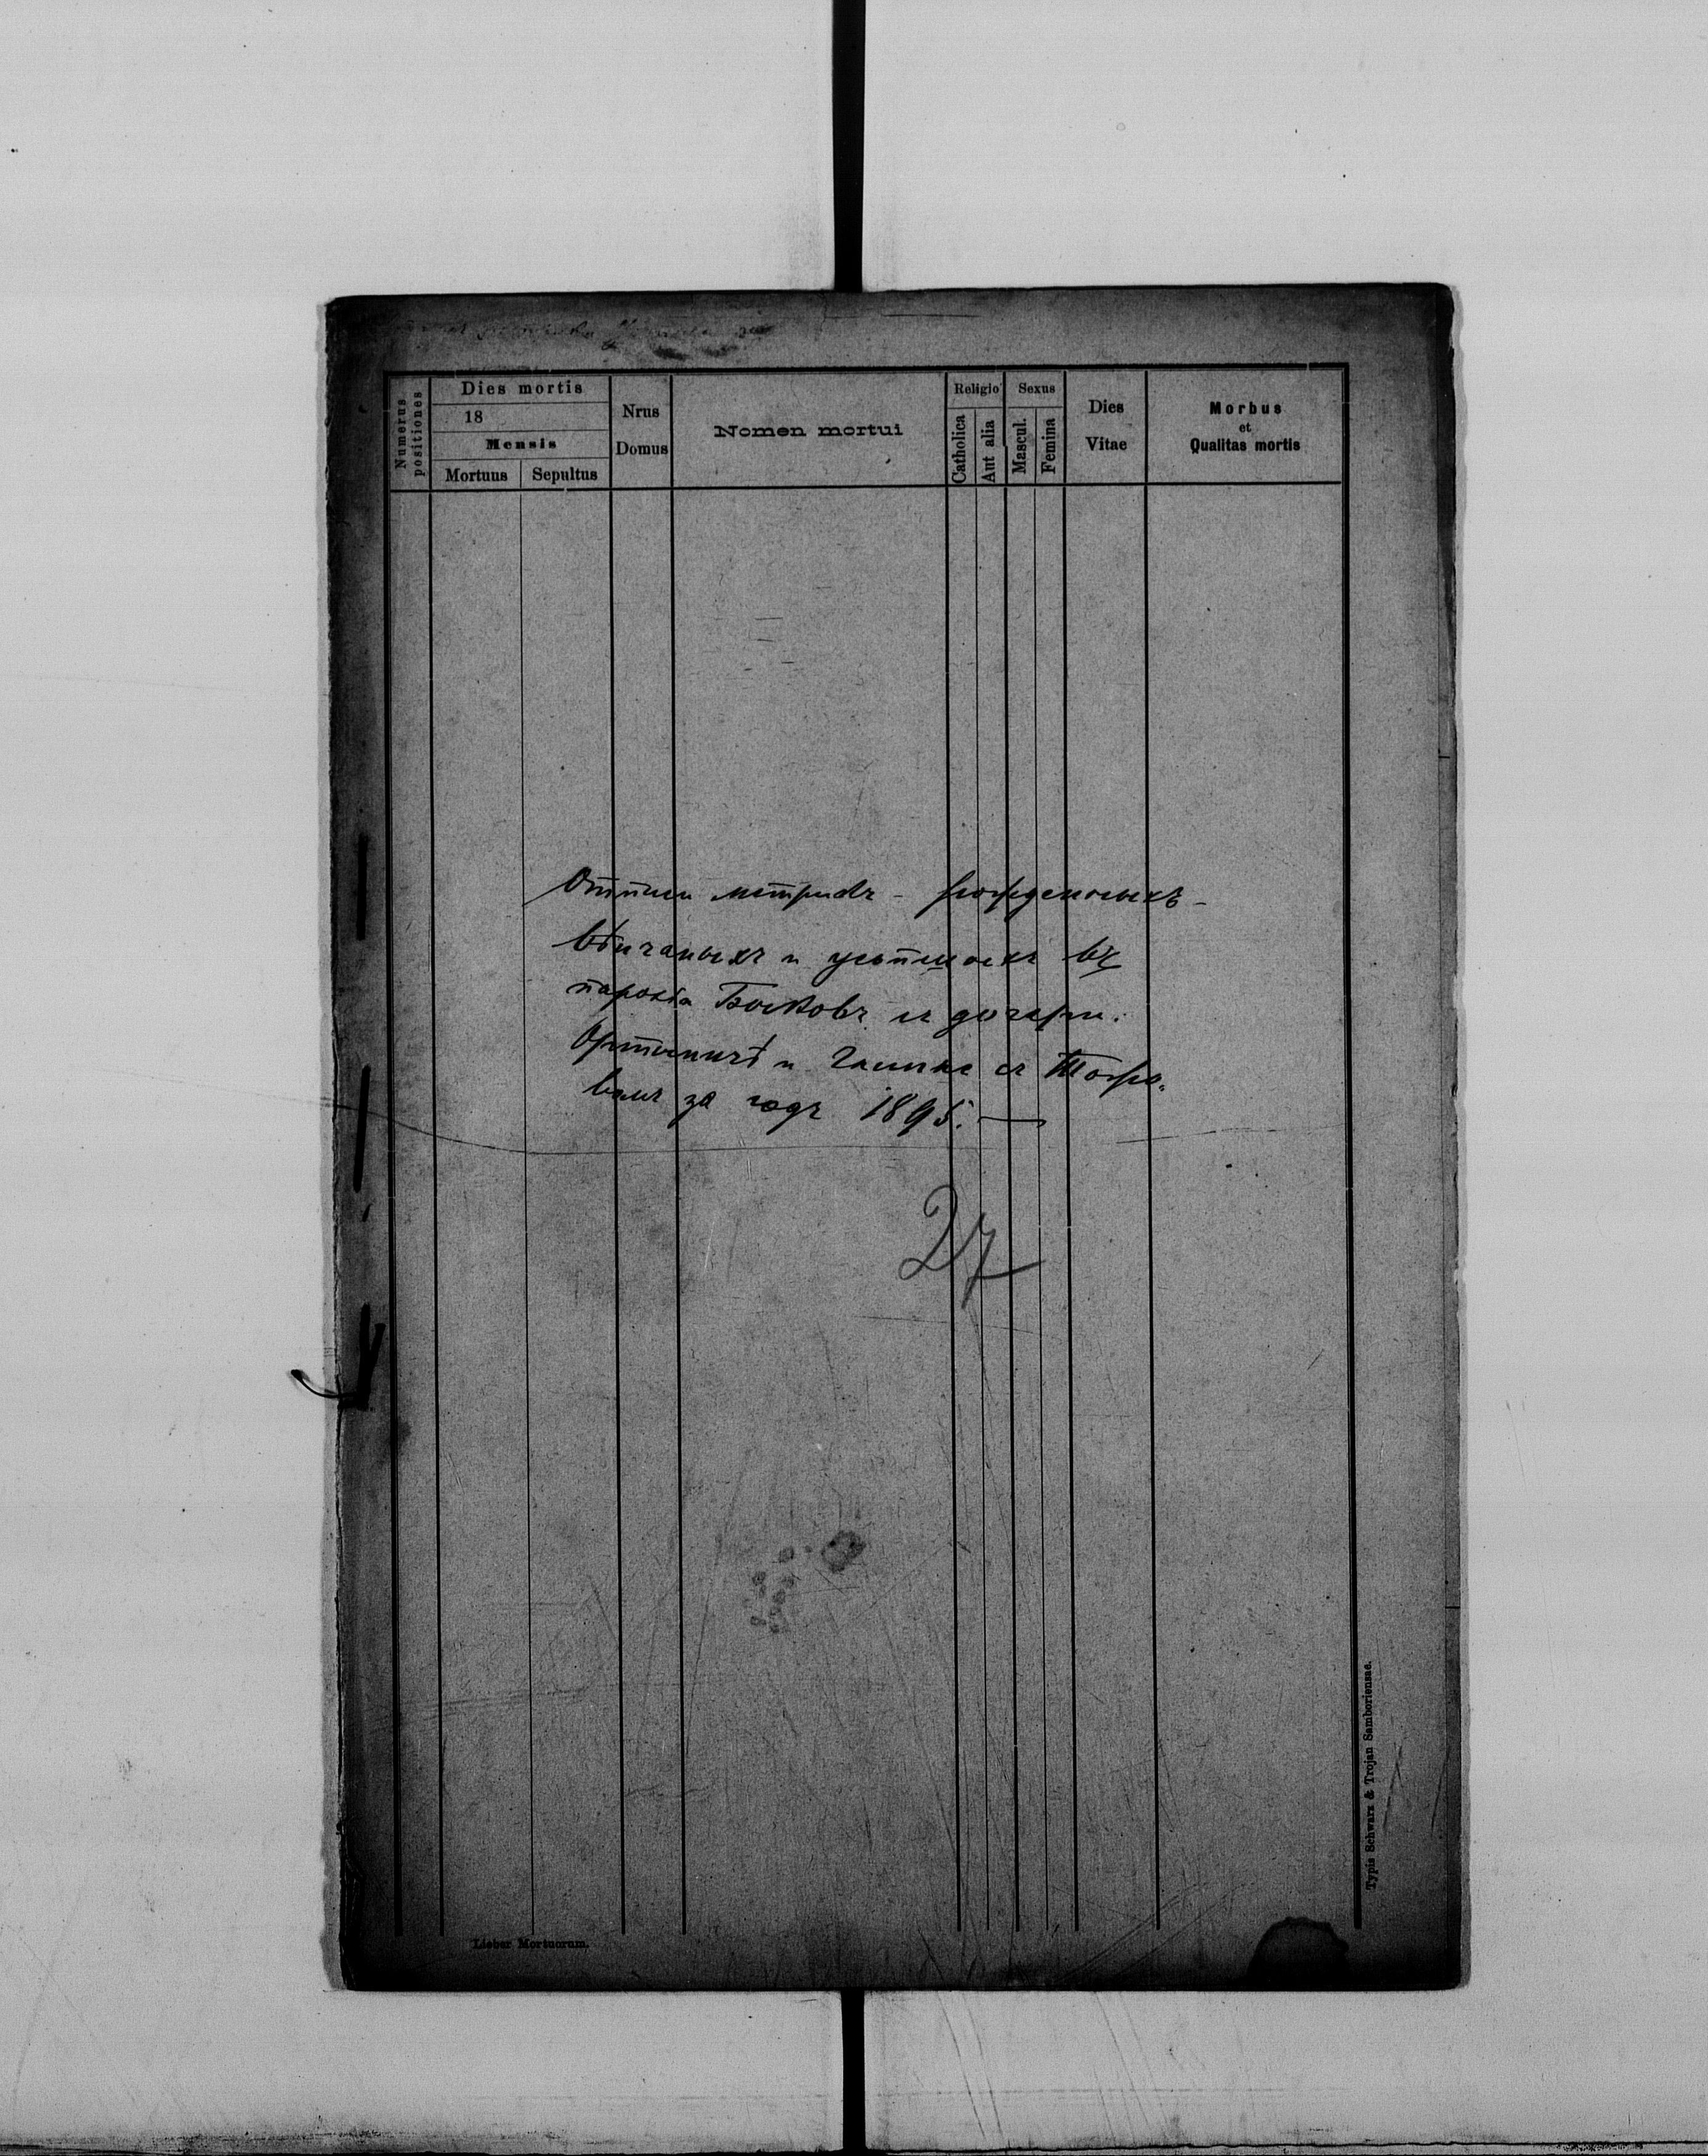 Numerus positiones
Dies mortis
18
Mensis
Mortuus Sepultus
Nrus Domus
Nomen mortui
Religio
Catholica Aut alia
Sexus
Mascul. Femina
Dies Vitae
Morbus
et
Qualitas mortis
Отписи метрикъ - рожденыхъ -
вѣнчаныхъ и усопшихъ въ
парохіи Быковъ съ дочерн.
Ортыничѣ и
за годъ 1895. —
27
Lieber Mortuorum.
Typis Schwarz & Trojan Samboriensae.